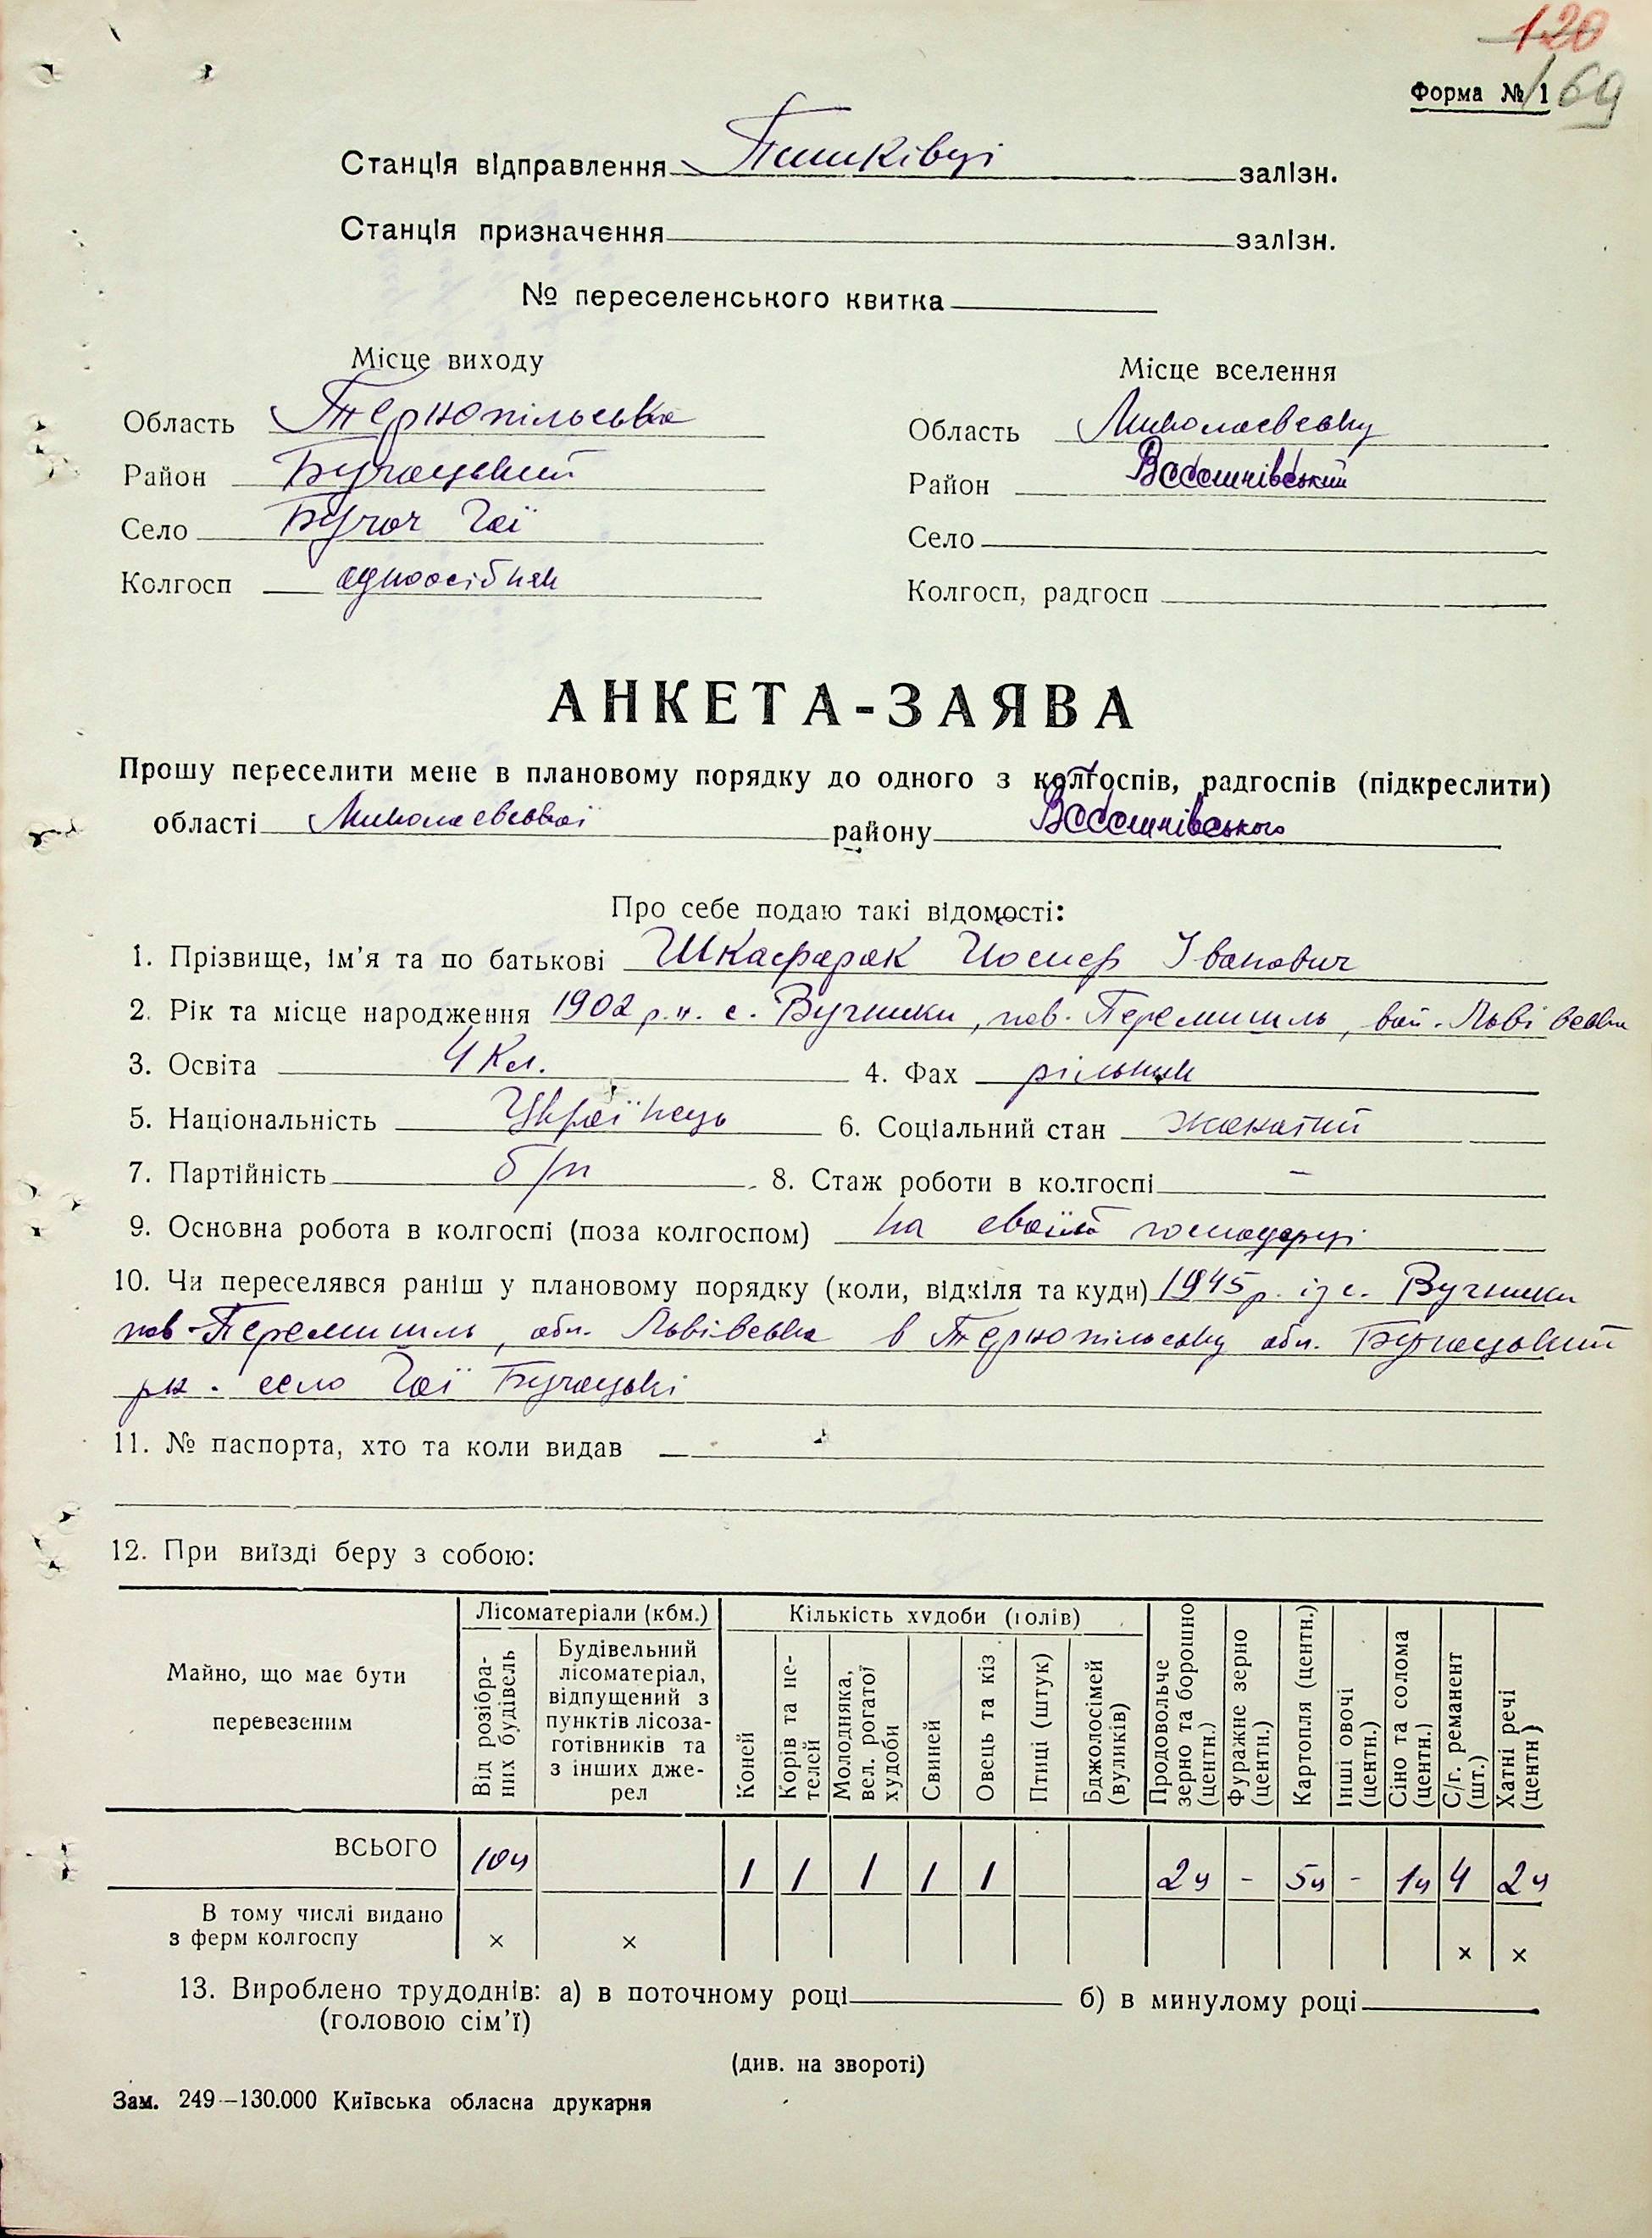 120
169
Форма № 1
Станція відправлення Пишківці залізн.
Станція призначення залізн.
№ переселенського квитка
Місце виходу
Місце вселення
Область Тернопільська
Область Миколаєвську
Район Бучацький
Район
Село Бучач Гаї
Село
Колгосп одноосібник
Колгосп, радгосп
АНКЕТА-ЗАЯВА
Прошу переселити мене в плановому порядку до одного з колгоспів, радгоспів (підкреслити)
області Миколаєвської району
Про себе подаю такі відомості:
1. Прізвище, ім'я та по батькові Шкафарак Йосиф Іванович
2. Рік та місце народження 1902 р.н. с. Вучники, пов. Перемишль, вой. Львівська
3. Освіта 4 Кл. 4. Фах рільник
5. Національність Українець 6. Соціальний стан жонатий
7. Партійність б/п 8. Стаж роботи в колгоспі —
9. Основна робота в колгоспі (поза колгоспом) на своїй господарці
10. Чи переселявся раніш у плановому порядку (коли, відкіля та куди) 1945 р. із с. Вучники
пов. Перемишль, обл. Львівська в Тернопільську обл. Бучацький
рн. село Гаї Бучацькі
11. № паспорта, хто та коли видав —
12. При виїзді беру з собою:
Майно, що має бути перевезеним
Лісоматеріали (кбм.)
Від розібраних будівель
Будівельний лісоматеріал, відпущений з пунктів лісозаготівників та з інших джерел
Кількість худоби (голів)
Коней
Корів та нетелей
Молодняка, вел. рогатої худоби
Свиней
Овець та кіз
Птиці (штук)
Бджолосімей (вуликів)
Продовольче зерно та борошно (центн.)
Фуражне зерно (центн.)
Картопля (центн.)
Інші овочі (центн.)
Сіно та солома (центн.)
С/г. реманент (шт.)
Хатні речі (центн.)
ВСЬОГО 10ц 1 1 1 1 1 2ц - 5ц - 1ц 4 2ц
В тому числі видано з ферм колгоспу × × × ×
13. Вироблено трудоднів: а) в поточному році б) в минулому році
(головою сім'ї)
(див. на звороті)
Зам. 249—130.000 Київська обласна друкарня